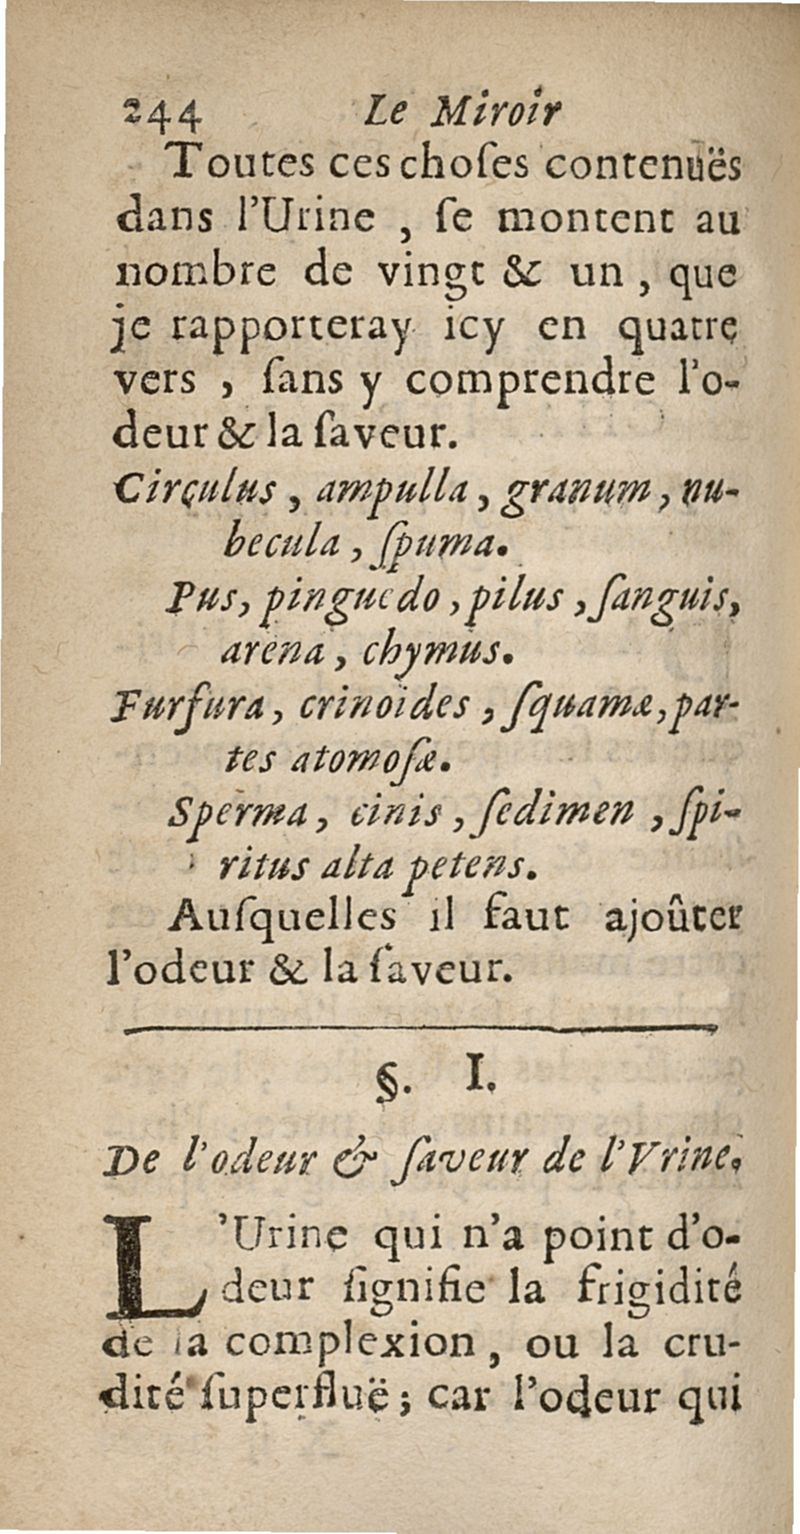 244 Le Miroir
Toutes ces choſes contenuës
dans l'Urine , ſe montent au
nombre de vingt & un , que
je rapporteray icy en quatre
vers , ſans y comprendre l'o-
deur & la ſaveur.
Circulus , ampulla , granum , nu-
becula , ſpuma.
Pus, pinguedo , pilus , ſanguis,
arena , chymus.
Furfura , crinoides , ſquamæ, par-
tes atomoſæ.
Sperma , cinis , ſedimen , ſpi-
ritus alta petens.
Auſquelles il faut ajoûter
l'odeur & la ſaveur.
§. I.
De l'odeur & ſaveur de l'Vrine.
L'Urine qui n'a point d'o-
deur ſignifie la frigidité
de la complexion , ou la cru-
dité ſuperfluë ; car l'odeur qui